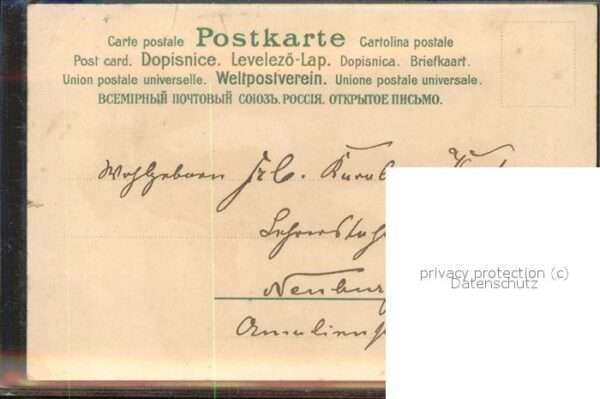 Carte postale Postkarte Cartolina postale
Post card. Dopisnice. Levelező-Lap. Dopisnica. Briefkaart.
Union postale universelle. Weltpostverein. Unione postale universale.
ВСЕМІРНЫЙ ПОЧТОВЫЙ СОЮЗЪ. РОССІЯ. ОТКРЫТОЕ ПИСЬМО.
Wohlgeboren
Neuburg
Amalien
privacy protection (c)
Datenschutz